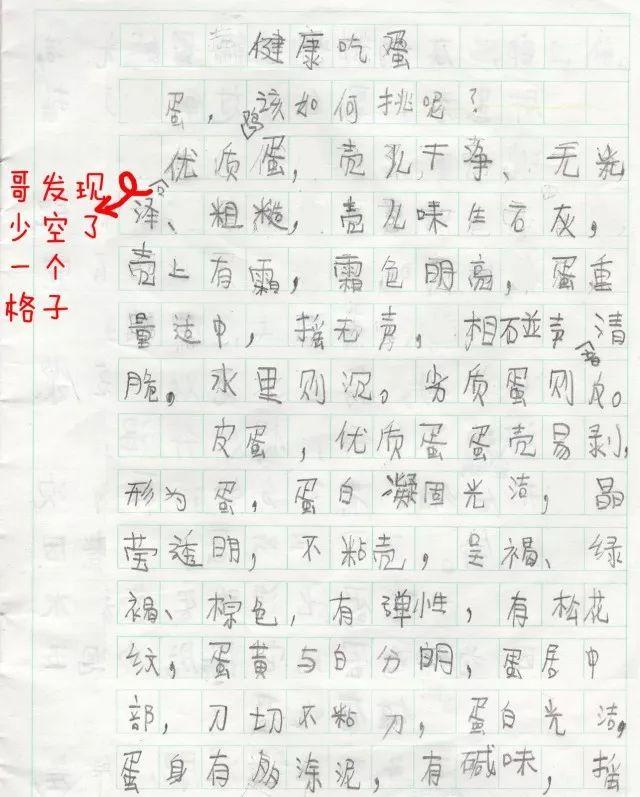 健康吃蛋
蛋，该如何挑呢？
鸡优质蛋，壳儿干净、无光
泽、粗糙，壳儿味生石灰，
壳上有霜，霜色明亮，蛋重
量适中，摇无声，相碰声清
脆，水里则沉。劣质蛋则反。
皮蛋，优质蛋蛋壳易剥，
形为蛋，蛋白凝固光洁，晶
莹透明，不粘壳，呈褐、绿
褐、棕色，有弹性，有松花
纹，蛋黄与白分明，蛋居中
部，刀切不粘刀，蛋白光洁，
蛋身有的涂泥，有碱味，摇
哥发现
少空了
一个
格子